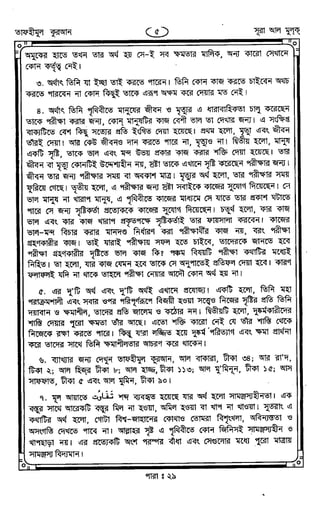 তাফহীমুল কুরআন
৫
সূরা আল মুলক
রয়েছে তখন তার অর্থ হয় সে-ই সব ক্ষমতার মালিক, অন্য কারো সেখানে
কোন কর্তৃত্ব নেই।
৩. অর্থাৎ তিনি যা ইচ্ছা তাই করতে পারেন। তিনি কোন কাজ করতে চাইবেন অথচ
করতে পারবেন না কোন কিছুই তাকে এরূপ অক্ষম করে দেয়ার মত নেই।
৪. অর্থাৎ তিনি পৃথিবীতে মানুষের জীবন ও মৃত্যুর এ ধারাবাহিকতা চালু করেছেন
তাকে পরীক্ষা করার জন্য, কোন্ মানুষটির কাজ বেশী ভাল তা দেখার জন্য। এ সংক্ষিপ্ত
বাক্যটিতে বেশ কিছু সত্যের প্রতি ইংগিত দেয়া হয়েছে। প্রথম হলো, মৃত্যু এবং জীবন
তাঁরই দেয়া। আর কেউ জীবনও দান করতে পারে না, মৃত্যুও না। দ্বিতীয় হলো, মানুষ
একটি সৃষ্টি, তাকে ভাল এবং মন্দ উভয় প্রকার কাজ করার শক্তি দেয়া হয়েছে। তার
জীবন বা মৃত্যু কোনটিই উদ্দেশ্যহীন নয়, স্রষ্টা তাকে এখানে সৃষ্টি করেছেন পরীক্ষার জন্য।
জীবন তার জন্য পরীক্ষার সময় বা অবকাশ মাত্র। মৃত্যুর অর্থ হলো, তার পরীক্ষার সময়
ফুরিয়ে গেছে। তৃতীয় হলো, এ পরীক্ষার জন্য স্রষ্টা সবাইকে কাজের সুযোগ দিয়েছেন। সে
ভাল মানুষ না খারাপ মানুষ, এ পৃথিবীতে কাজের মাধ্যমে সে যাতে তার প্রকাশ ঘটাতে
পারে সে জন্য সৃষ্টিকর্তা প্রত্যেককে কাজের সুযোগ দিয়েছেন। চতুর্থ হলো, কার কাজ
ভাল এবং কার কাজ খারাপ প্রকৃতপক্ষে সৃষ্টিকর্তাই তার ফায়সালা করবেন। কাজের
ভাল-মন্দ বিচার করার মানদণ্ড নির্ধারণ করা পরীক্ষার্থীর কাজ নয়, বরং পরীক্ষা
গ্রহণকারীর কাজ। তাই যারাই পরীক্ষায় সফল হতে চাইবে, তাদেরকে জানতে হবে
পরীক্ষা গ্রহণকারীর দৃষ্টিতে ভাল কাজ কি? পঞ্চম বিষয়টি পরীক্ষা কথাটির মধ্যেই
নিহিত। তা হলো, যার কাজ যেমন হবে তাকে সে অনুপাতেই প্রতিফল দেয়া হবে। কারণ
ফলাফলই যদি না থাকে তাহলে পরীক্ষা নেয়ার আদৌ কোন অর্থ হয় না।
৫. এর দু'টি অর্থ এবং দু'টি অর্থই এখানে প্রযোজ্য। একটি হলো, তিনি মহা
পরাক্রমশালী এবং সবার ওপর পরিপূর্ণরূপে বিজয়ী হওয়া সত্ত্বেও নিজের সৃষ্টির প্রতি তিনি
দয়াবান ও ক্ষমাশীল, তাদের প্রতি জালেম ও কঠোর নন। দ্বিতীয়টি হলো, দুষ্কর্মকারীদের
শাস্তি দেয়ার পুরো ক্ষমতা তাঁর আছে। এতো শক্তি কারো নেই যে তাঁর শাস্তি থেকে
নিজেকে রক্ষা করতে পারে। কিন্তু যারা লজ্জিত হয়ে দুষ্কর্ম পরিত্যাগ এবং ক্ষমা প্রার্থনা
করে তাদের সাথে তিনি ক্ষমাশীলতার আচরণ করে থাকেন।
৬. ব্যাখ্যার জন্য দেখুন তাফহীমুল কুরআন, আল বাকারা, টীকা ৩৪; আর রা'দ,
টীকা ২; আল হিজর টীকা ৮; আল হাজ্জ, টীকা ১১৩; আল মু'মিনূন, টীকা ১৫; আস
সাফফাত, টীকা ৫ এবং আল মু'মিন, টীকা ৯০।
৭. মূল আয়াতে تَفَاوُت শব্দ ব্যবহৃত হয়েছে যার অর্থ হলো সামঞ্জস্যহীনতা। এক
বস্তুর সাথে আরেকটি বস্তুর মিল না হওয়া, অমিল হওয়া বা খাপ না খাওয়া। সুতরাং এ
কথাটির অর্থ হলো, গোটা বিশ্ব-জাহানের কোথাও তোমরা বিশৃংখলা, অবিন্যস্ততা ও
অসংগতি দেখতে পাবে না। আল্লাহর সৃষ্ট এ পৃথিবীতে কোন জিনিসই সামঞ্জস্যহীন ও
খাপছাড়া নয়। এর প্রত্যেকটি অংশ পরস্পর বাঁধা এবং সেগুলোর মধ্যে পুরো মাত্রায়
সামঞ্জস্য বিদ্যমান।
পারা : ২৯